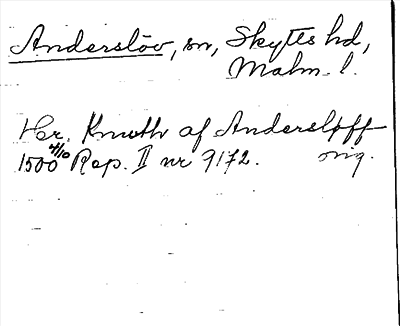 Anderslöv, sn, Skytts hd,
Malm. l.
Her. Knwth af Andersløff
1500 4/10 Rep. II nr 9172. orig.